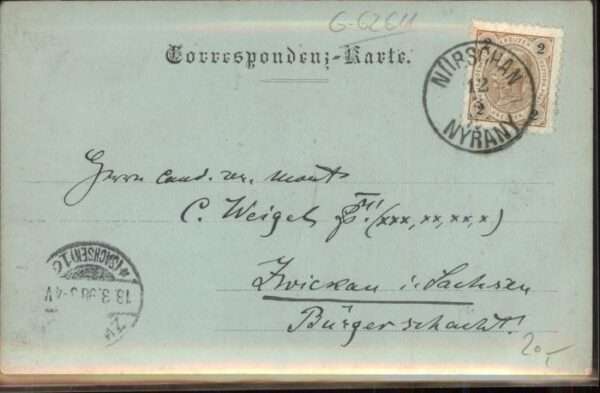 G-62611
Correspondenz-Karte.
2
2
2
NÜRSCHAN
12
3
NÝŘANY
Herrn cand. rer. mont.
C. Weigel (xxx, xx, xx, x)
Zwickau i. Sachsen
Bürgerschacht!
*(SACHSEN)1c
13.3.98 3-4V
ZW
20,-